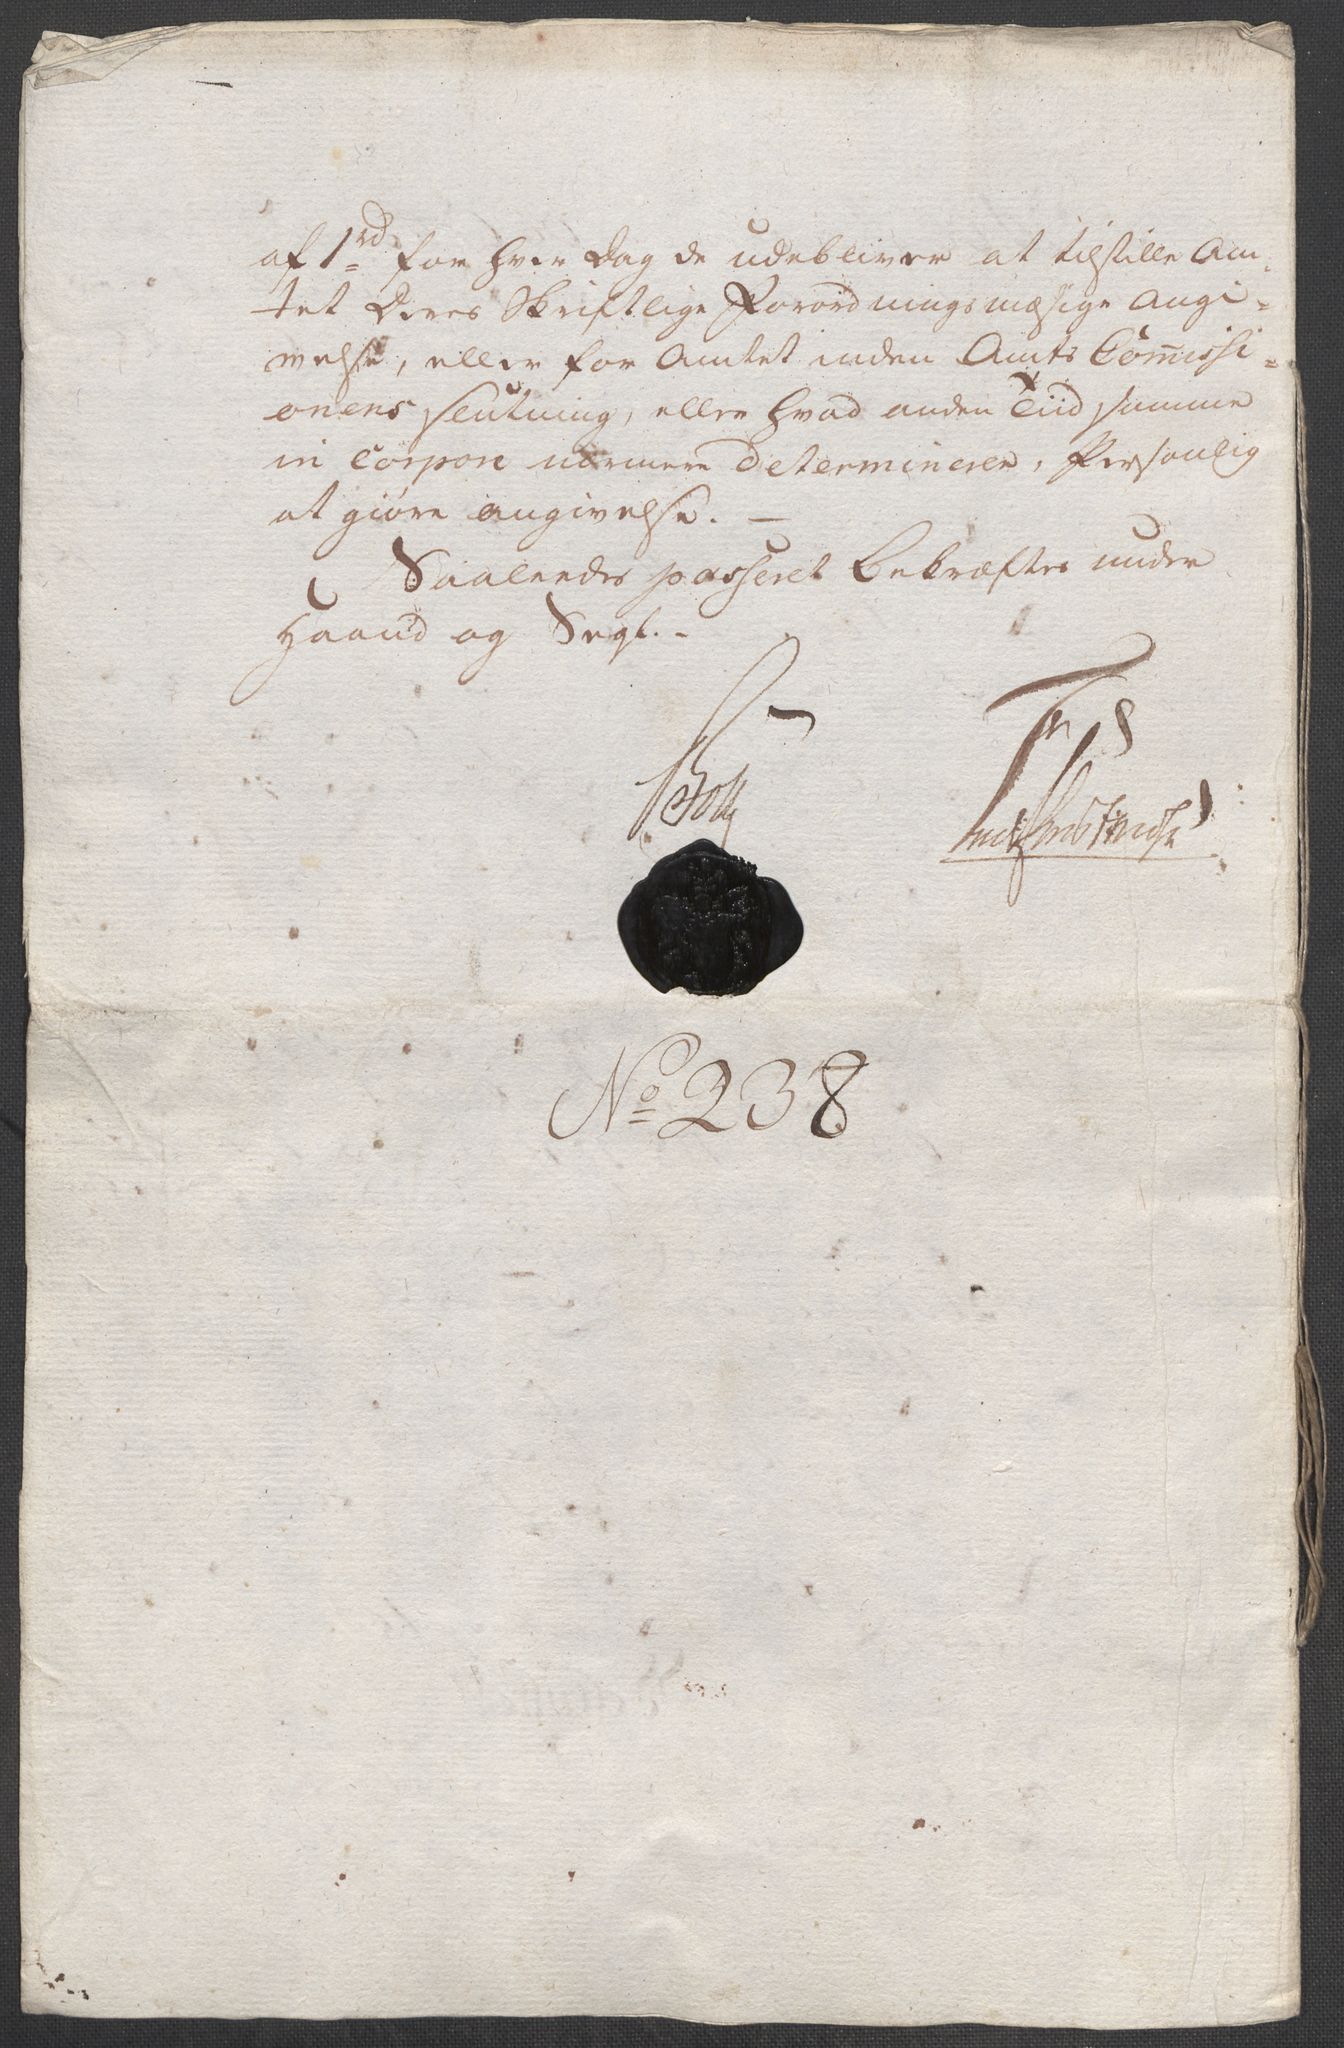 af 1 rd for hver Dag de udebliver at tilstille Am-
tet Deres Skriftlige Forordningsmæsige Angi-
velse, eller for Amtet inden Amts Com̄issi-
onens slutning, eller hvad anden Tiid samme
in Corpore nærmere Determinerer, Personlig
at giøre angivelse. —
Saaleedes passeret Bekræftes under
Haand og Segl. -
No 238